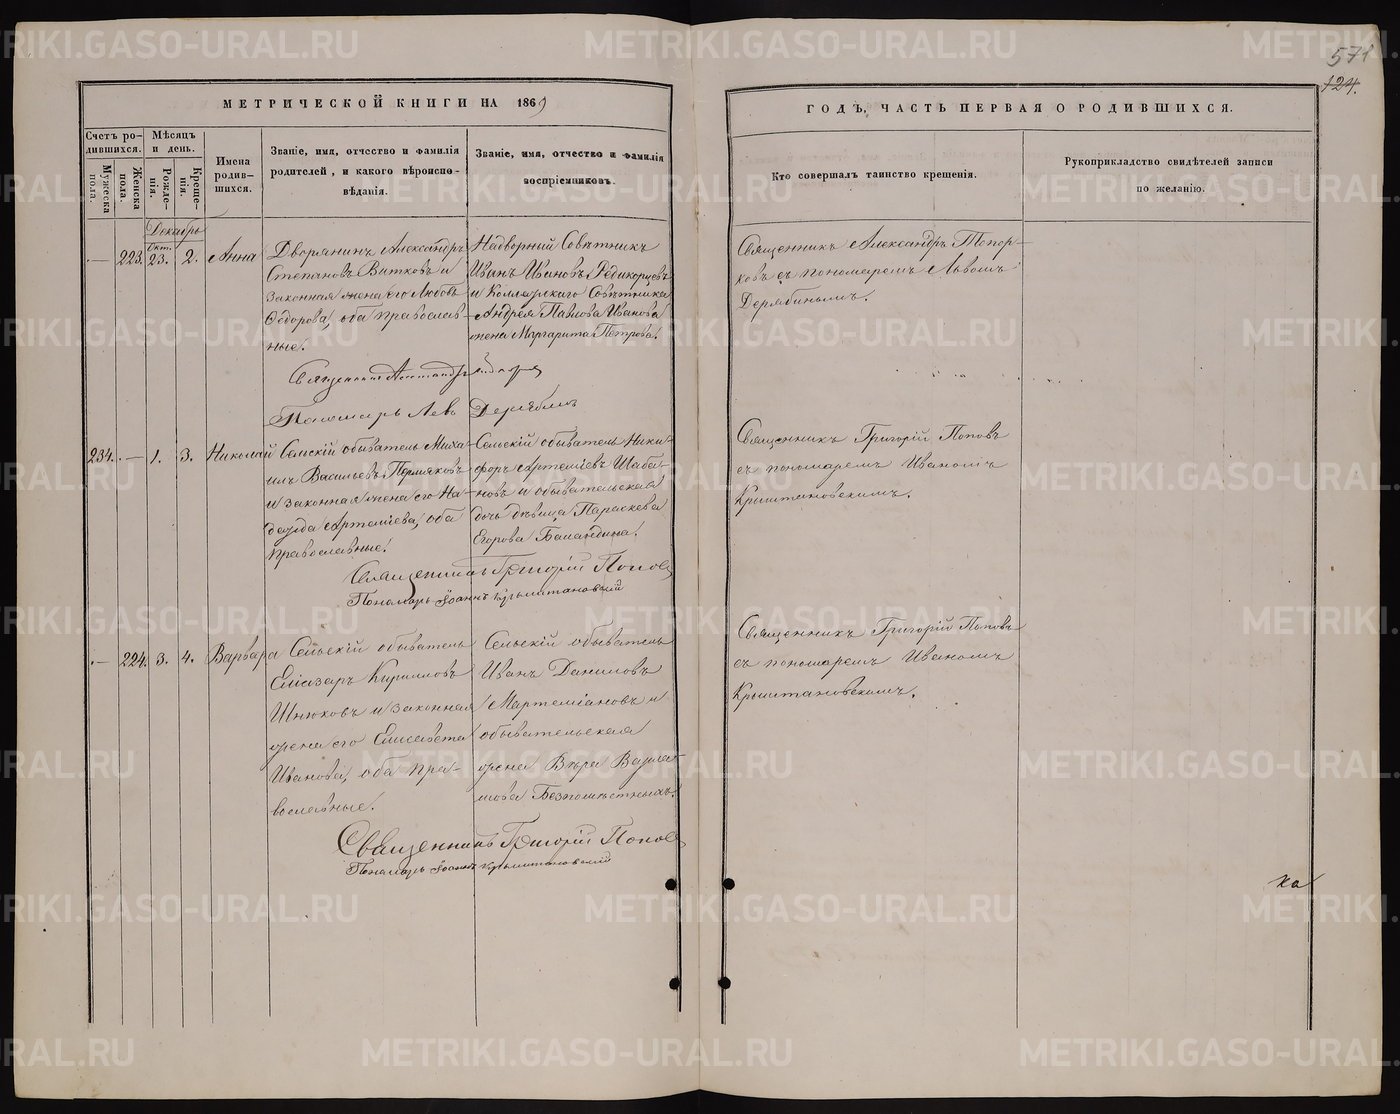 МЕТРИЧЕСКОЙ КНИГИ НА 1869
Счетъ ро-
дившихся.
Мѣсяцъ
и день.
Мужеска
пола.
Женска
пола.
Рожде-
нія.
Креще-
нія.
Имена
родив-
шихся.
Званіе, имя, отчество и фамилія
родителей, и какого вѣроиспо-
вѣданія.
Званіе, имя, отчество и фамилія
воспріемниковъ.
Декабрь
223. Окт. 23. 2. Анна
Дворянинъ Александръ
Степановъ Вятковъ и
законная жена его Любовь
Ѳедорова, оба православ-
ные.
Надворний Совѣтникъ
Иванъ Ивановъ Редикорцевъ
и Коллежскаго Совѣтника
Андрея Павлова Иванова
жена Маргарита Петрова.
Священникъ Александръ Топорковъ
Пономарь Левъ Дерябинъ
234. — 1. 3. Николай
Сельскій обыватель Миха-
илъ Васильевъ Пермяковъ
и законная жена его На-
дежда Артеміева, оба
православные.
Сельскій обыватель Ники-
форъ Артеміевъ Шаба-
новъ и обывательская
дочь дѣвица Параскева
Егорова Баландина.
Священникъ Григорій Поповъ
Пономарь Іоаннъ Крыштановскій
— 224. 3. 4. Варвара
Сельскій обыватель
Елиазаръ Кирилловъ
Шнюковъ и законная
жена его Елисавета
Иванова, оба пра-
вославные.
Сельскій обыватель
Иванъ Даниловъ
Мартеміановъ и
обывательская
жена Вѣра Варла-
мова Безпомѣстныхъ.
Священникъ Григорій Поповъ
Пономарь Іоаннъ Крыштановскій
571
124.
ГОДЪ, ЧАСТЬ ПЕРВАЯ О РОДИВШИХСЯ.
Кто совершалъ таинство крещенія.
Рукоприкладство свидѣтелей записи
по желанію.
Священникъ Александръ Топор-
ковъ съ пономаремъ Львомъ
Дерябинымъ.
Священникъ Григорій Поповъ
съ пономаремъ Иваномъ
Крыштановскимъ.
Священникъ Григорій Поповъ
съ пономаремъ Иваномъ
Крыштановскимъ.
ка
METRIKI.GASO-URAL.RU